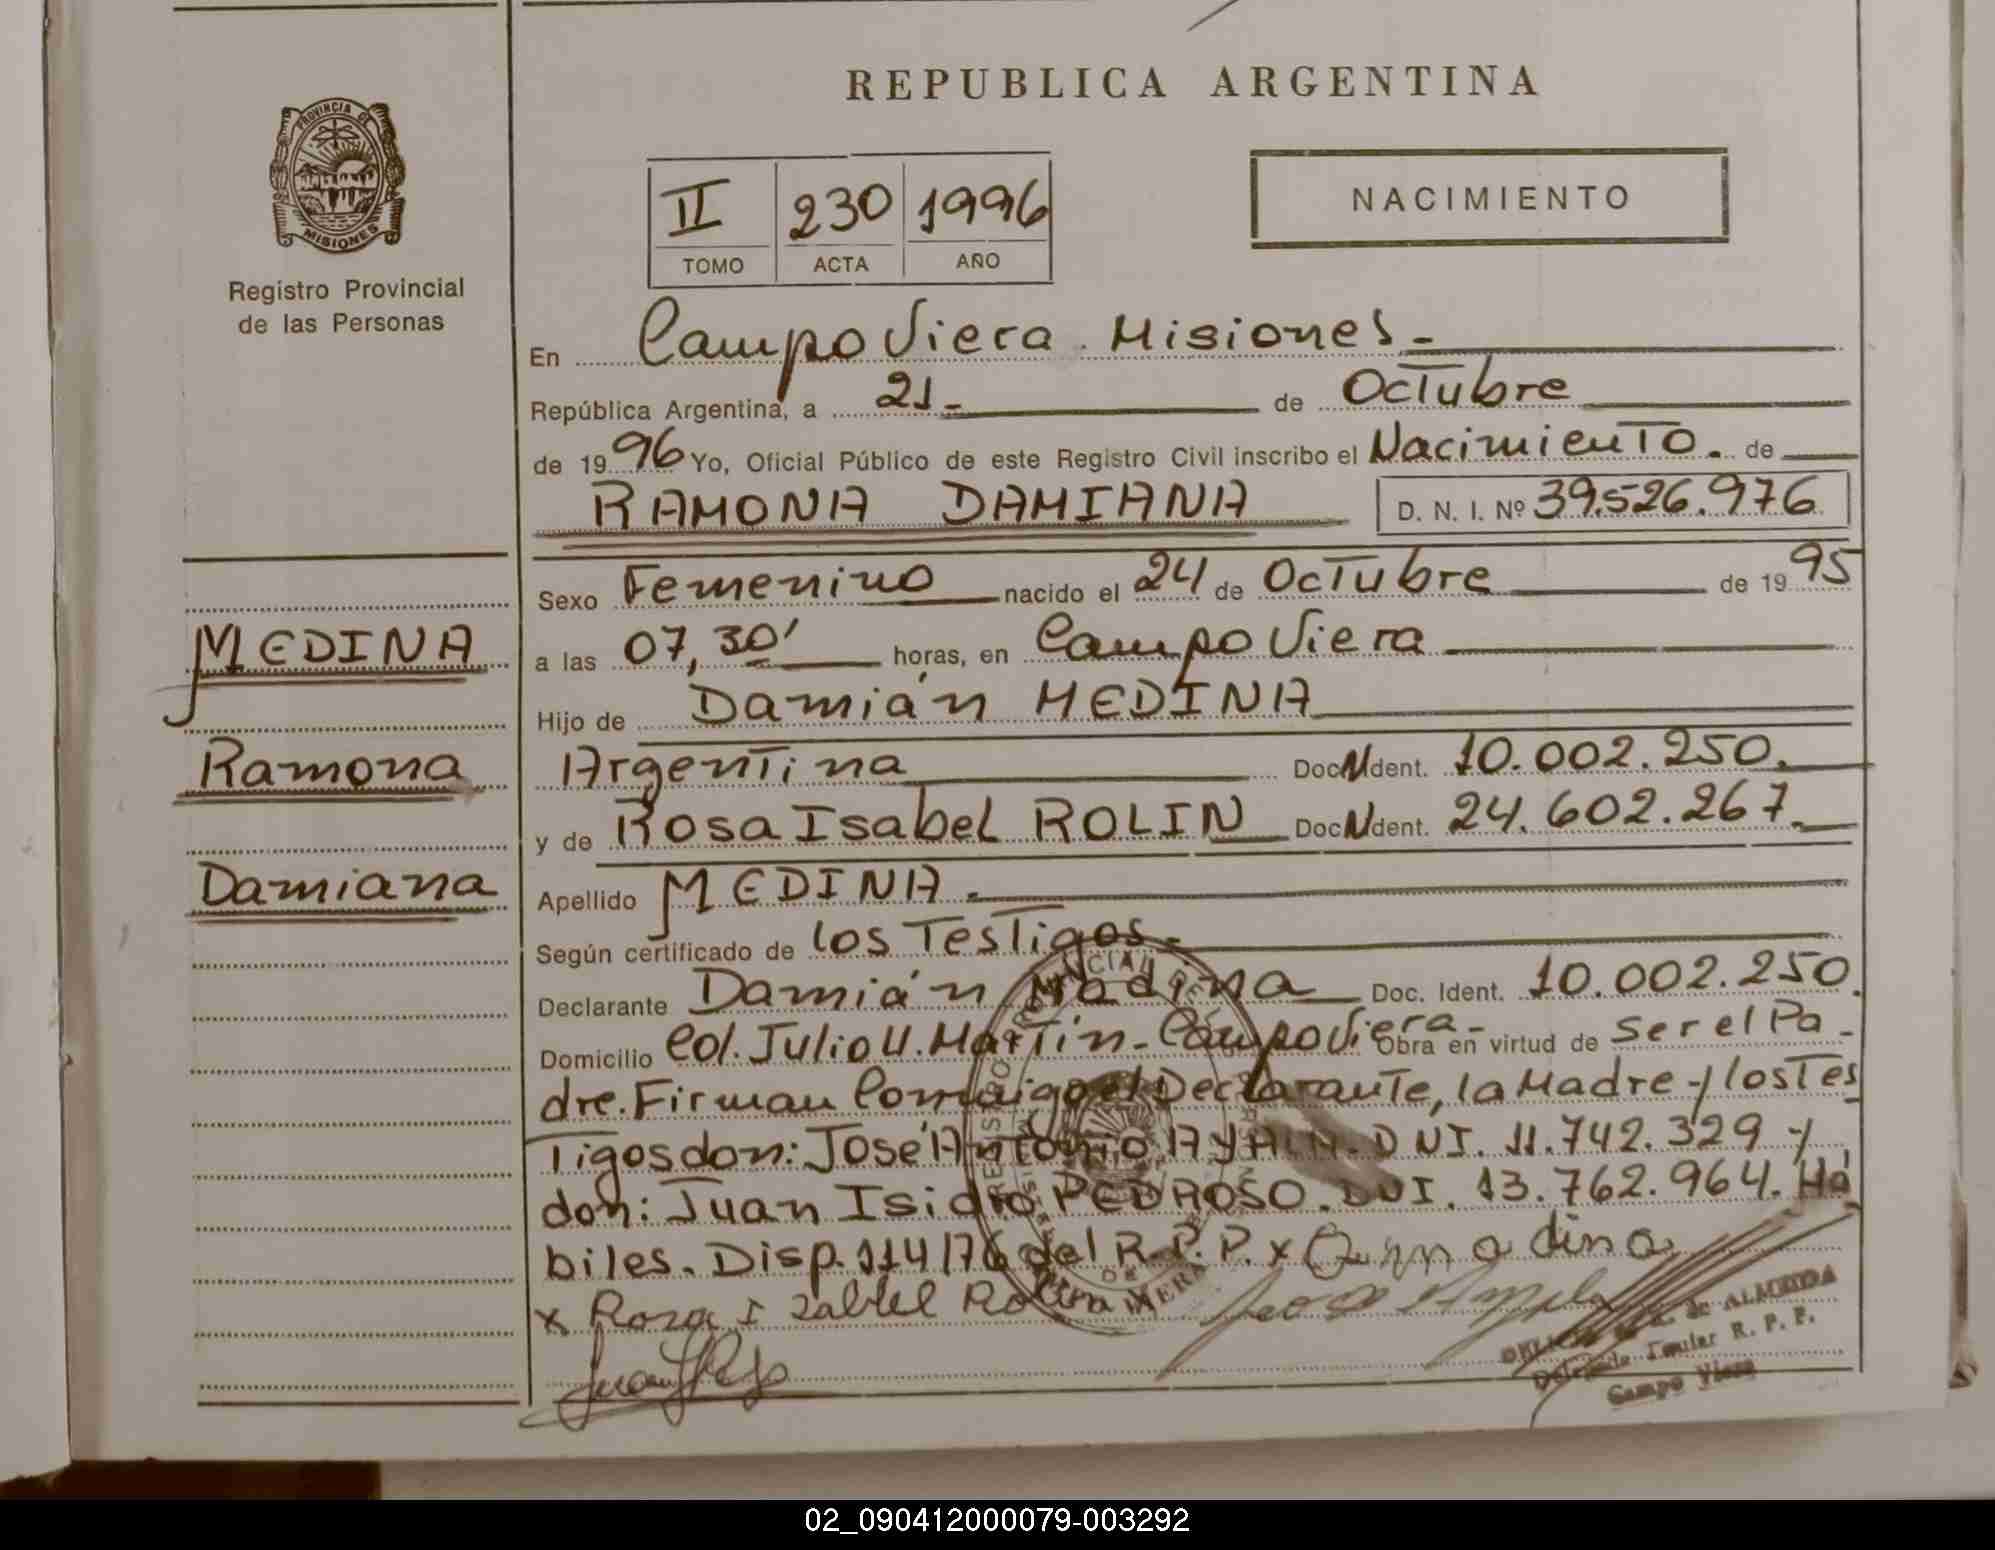 REPUBLICA ARGENTINA
PROVINCIA DE
MISIONES
Registro Provincial
de las Personas
II 230 1996
TOMO ACTA AÑO
NACIMIENTO
En Campo Viera Misiones.-
República Argentina, a 21- de Octubre
de 1996 Yo, Oficial Público de este Registro Civil inscribo el Nacimiento. de
RAMONA DAMIANA D. N. I. Nº 39.526.976
MEDINA
Ramona
Damiana
Sexo Femenino nacido el 24 de Octubre de 1995
a las 07,30' horas, en Campo Viera
Hijo de Damián MEDINA
Argentina DocNIdent. 10.002.250.
y de Rosa Isabel ROLIN DocNIdent. 24.602.267.
Apellido MEDINA.-
Según certificado de los Testigos.-
Declarante Damián Madina Doc. Ident. 10.002.250.
Domicilio Col. Julio U. Martín- Campo Viera- Obra en virtud de ser el Pa-
dre. Firman Conmigo el Declarante, la Madre y los Tes
Tigos don: José Antonio AYALA. DNI. 11.742.329 y
don: Juan Isidro PEDROSO. DNI. 13.762.964. Há
biles. Disp. 114/76 del R.P.P. x
x Rosa I zabel Rolin
de ALMEIDA
Titular R. P. P.
Campo Viera
02_090412000079-003292